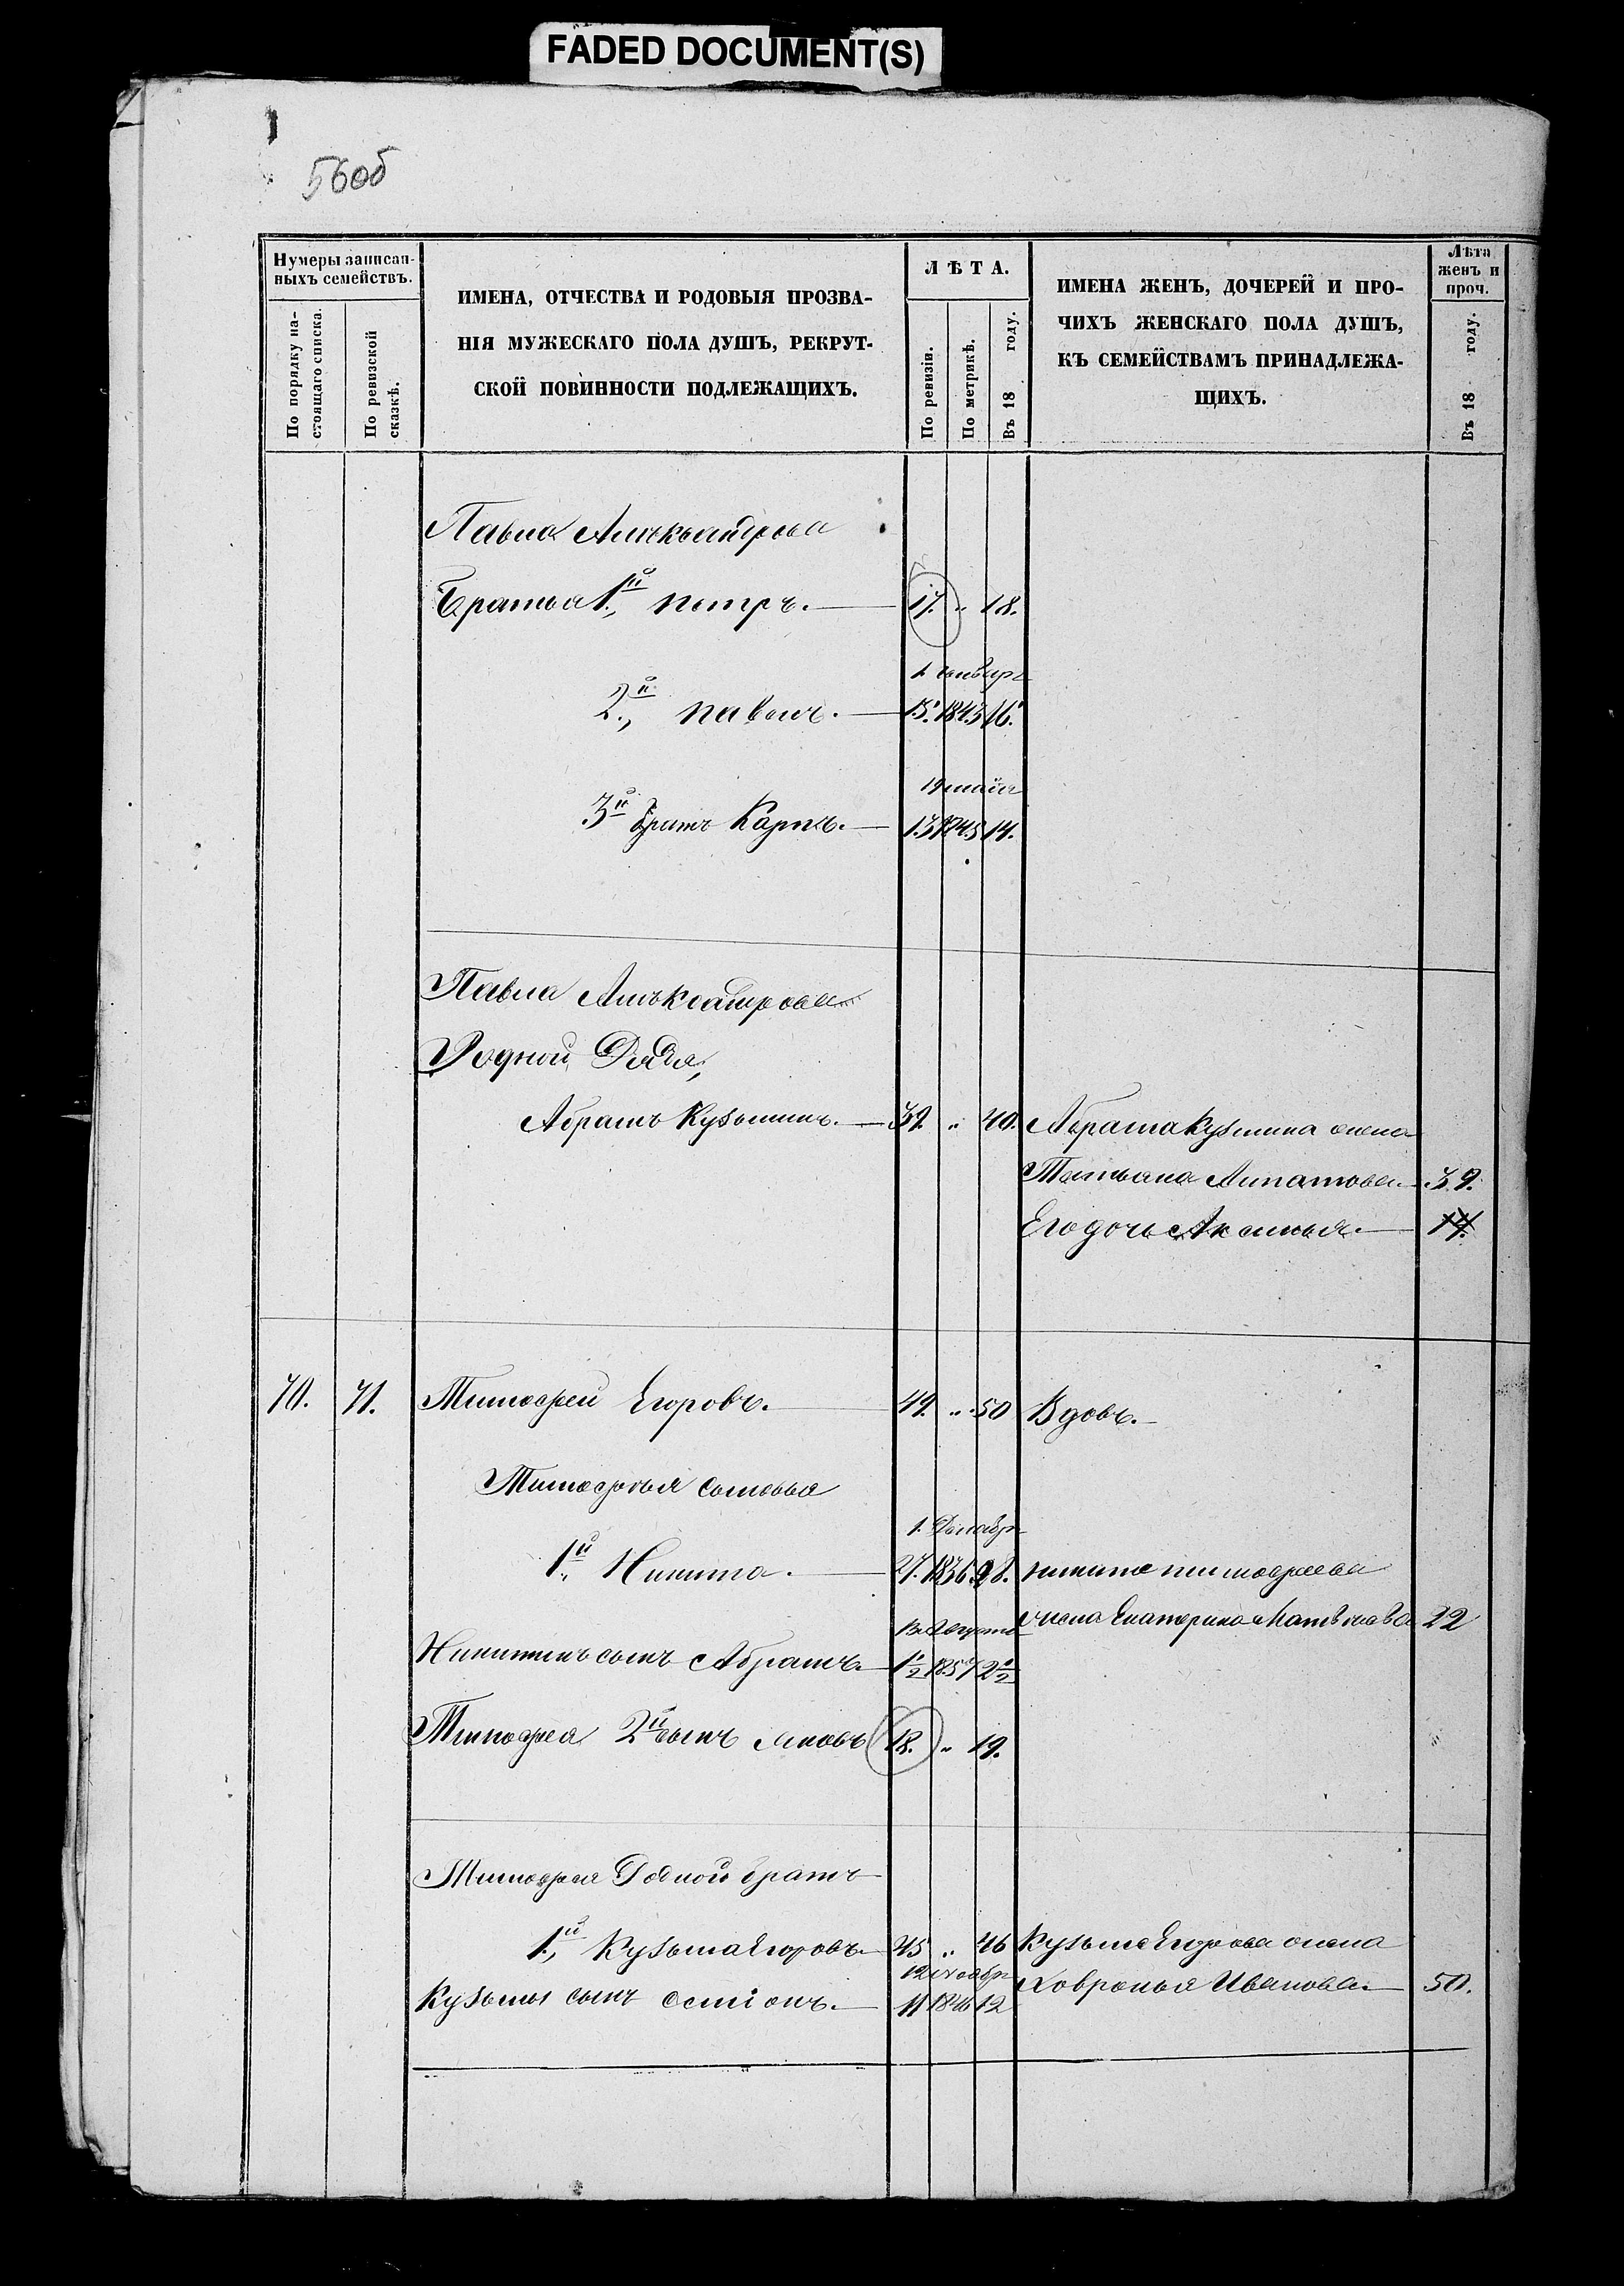 FADED DOCUMENT(S)
56об
Нумеры записан-
ныхъ семействъ.
По порядку на-
стоящаго списка.
По ревизской
сказкѣ.
ИМЕНА, ОТЧЕСТВА И РОДОВЫЯ ПРОЗВА-
НІЯ МУЖЕСКАГО ПОЛА ДУШЪ, РЕКРУТ-
СКОЙ ПОВИННОСТИ ПОДЛЕЖАЩИХЪ.
ЛѢТА.
По ревизіи.
По метрикѣ.
Въ 18 году.
ИМЕНА ЖЕНЪ, ДОЧЕРЕЙ И ПРО-
ЧИХЪ ЖЕНСКАГО ПОЛА ДУШЪ,
КЪ СЕМЕЙСТВАМЪ ПРИНАДЛЕЖА-
ЩИХЪ.
Лѣта
женъ и
проч.
Въ 18 году.
Павла Александрова
Братья 1й, петръ. 17. „ 18.
1 январ
2й, павелъ. 15. 1843 16.
19 маія
3й братъ Карпъ. 13 1845 14.
Павла Александрова
Родной Дядя,
Абрамъ Кузьминъ. 39. „ 40. Абрама Кузмина жена
Татьяна Антипова 39.
Его дочь Аксинья. 14.
70. 71. Тимофей Егоровъ. 49. „ 50 Вдовъ.
Тимофея сыновья
1. Декабр
1й, Никита. 27. 1836 28. никиты тимофеева
жена Екатерина Матвѣева 22
Августа
Никитинъ сынъ Абрамъ. 1½ 1857 2½
Тимофея 2й сынъ Яковъ 18. „ 19.
Тимофея Родной братъ
1й, Кузьма Егоровъ 45 „ 46 Кузьмы Егорова жена
12 ноябр
Ховронья Иванова 50.
Кузьмы сынъ семіонъ. 11 1846 12